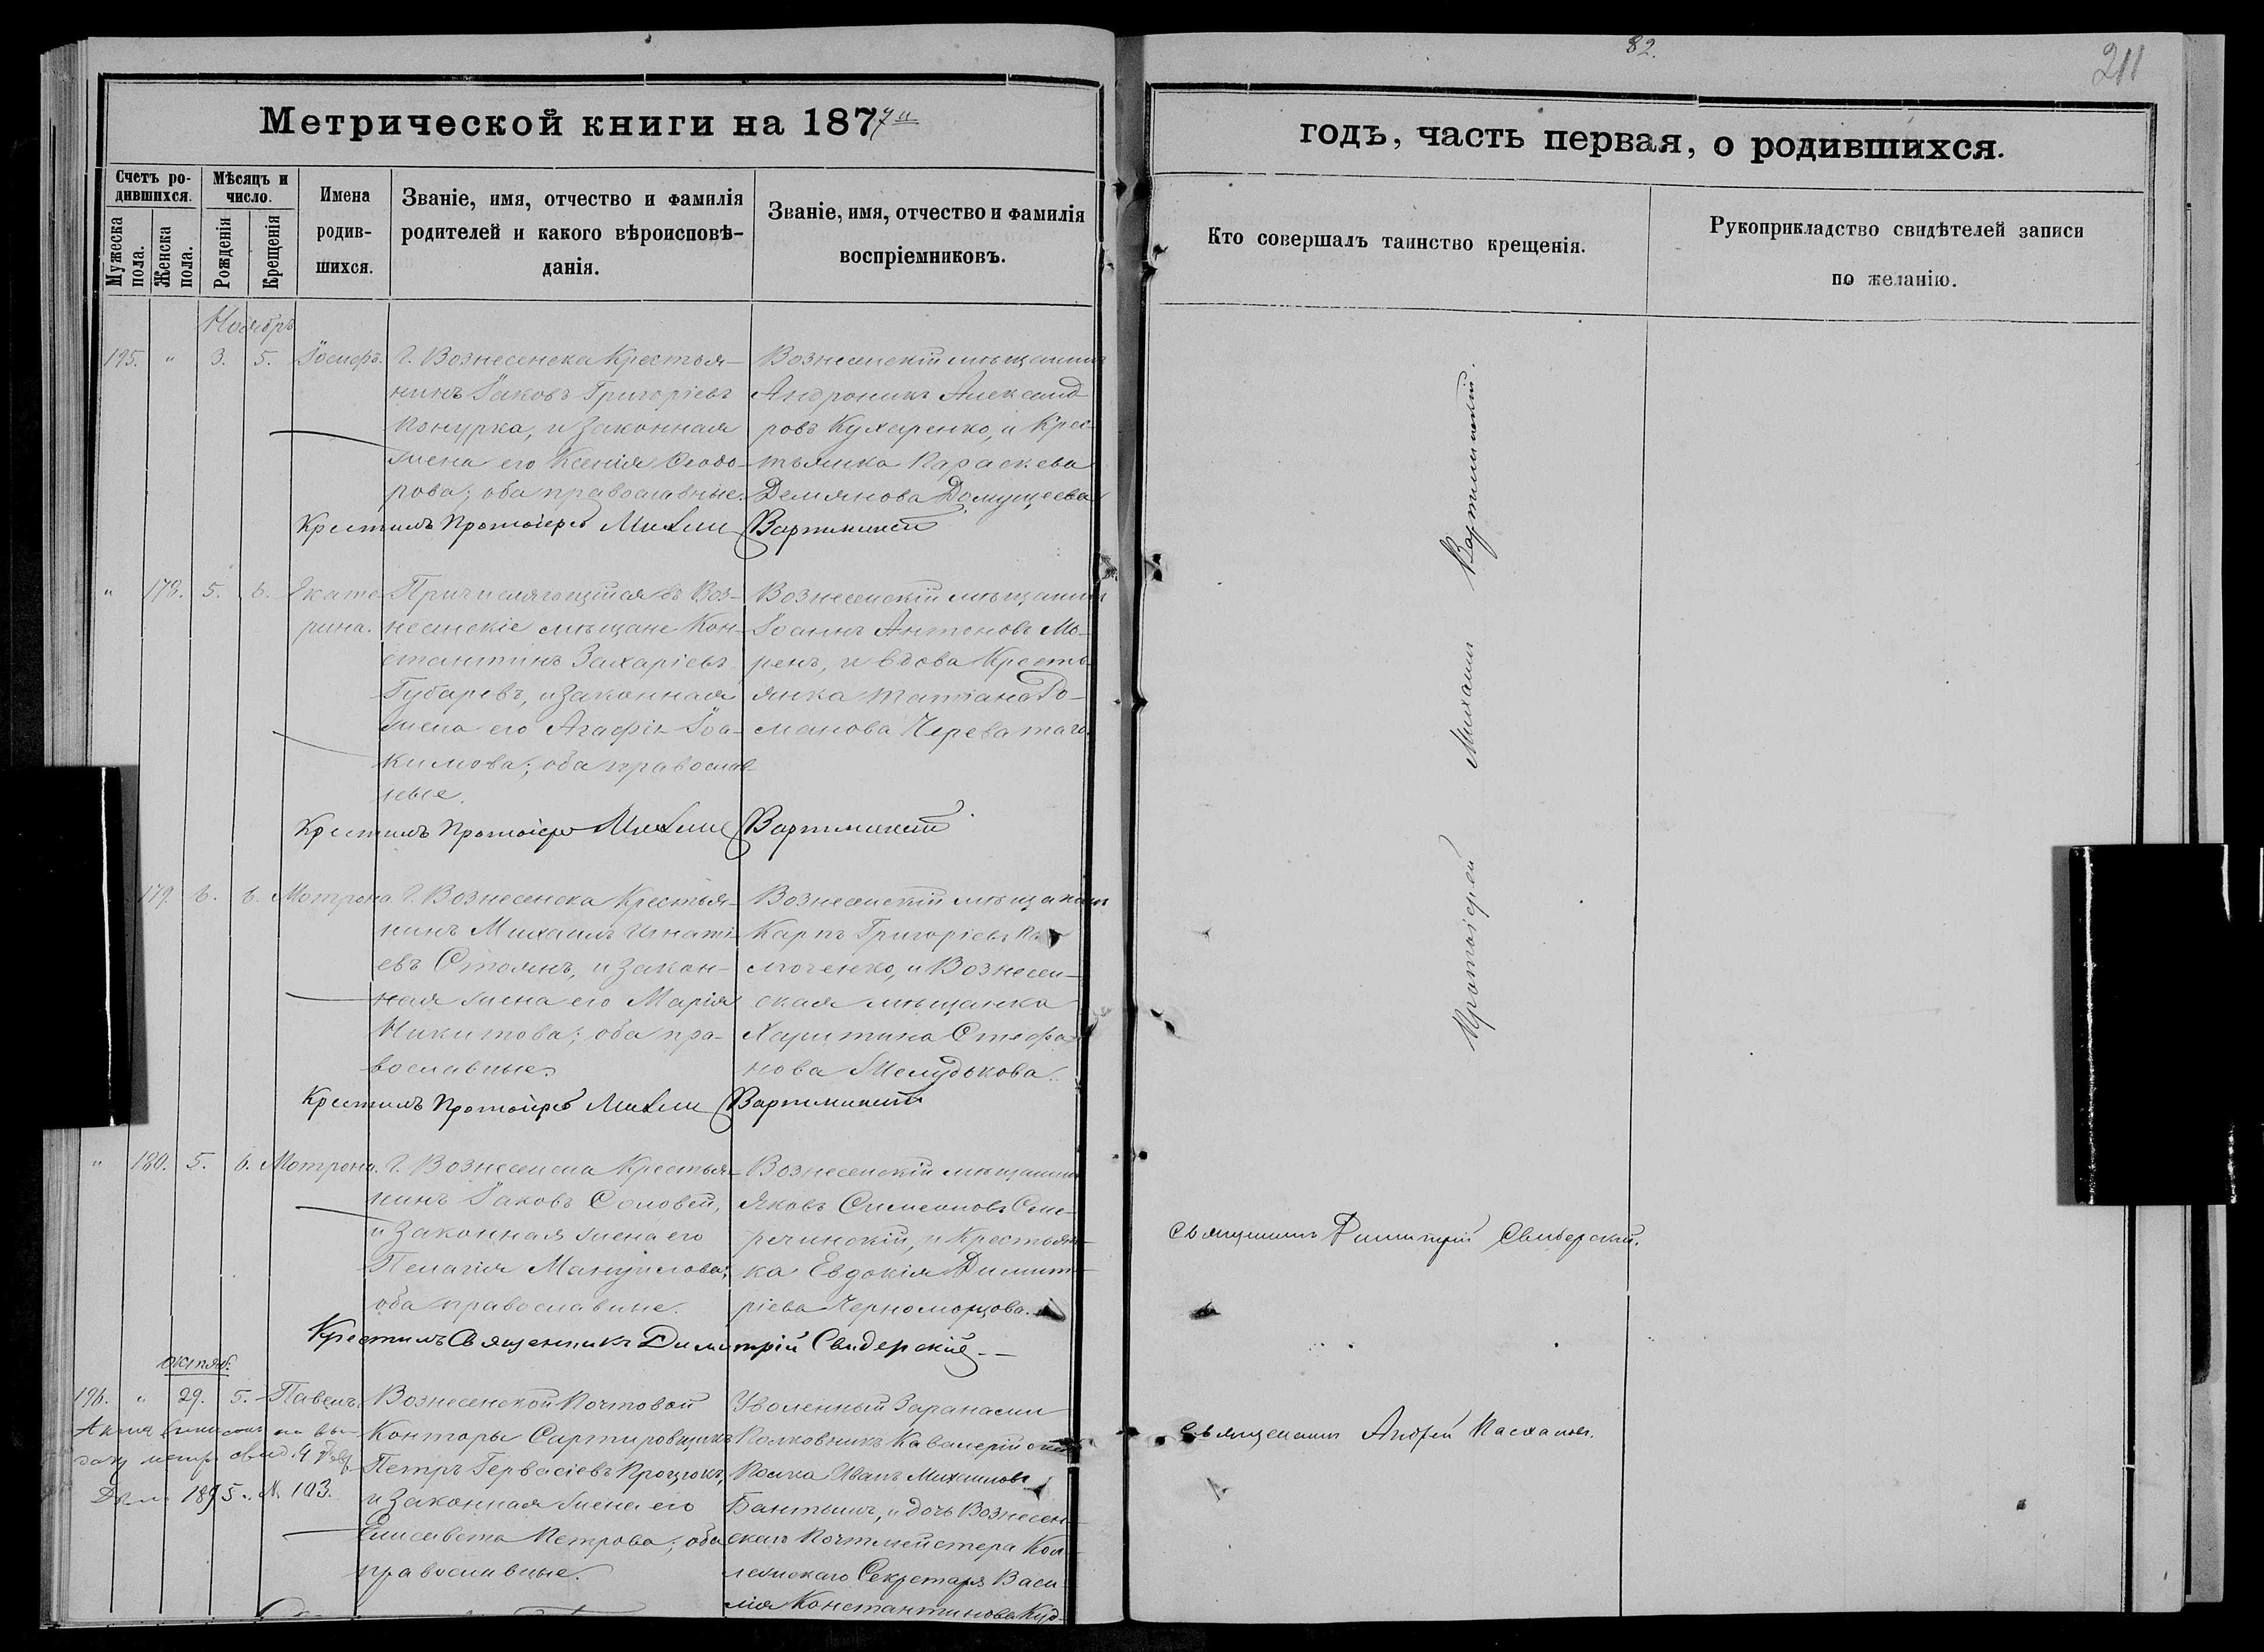 82.
211
Метрической книги на 1877й
годъ, часть первая, о родившихся.
Счетъ ро-
дившихся.
Мужеска
пола.
Женска
пола.
Мѣсяцъ и
число.
Рожденія
Крещенія
Имена
родив-
шихся.
Званіе, имя, отчество и фамилія
родителей и какого вѣроисповѣ-
данія.
Званіе, имя, отчество и фамилія
воспріемниковъ.
Кто совершалъ таинство крещенія.
Рукоприкладство свидѣтелей записи
по желанію.
Ноябрь
195. " 3. 5. Іосифъ.
Г. Вознесенска Крестья-
нинъ Іаковъ Григоріевъ
Конурка, и законная
жена его Ксенія Ѳеодо-
рова; оба православные.
Вознесенскій мѣщанинъ
Андроникъ Александ
ровъ Кухаренко, и Крес-
тьянка Параскева
Демянова Домущеева
Крестилъ Протоіерей Михаилъ Вартминскій
" 178. 5. 6. Екате
рина.
Причисляющійся въ Воз-
несенскіе мѣщане Кон-
стантинъ Захаріевъ
Губаревъ, и законная
жена его Агафія Іоа-
кимова; оба православ-
ные.
Вознесенскій мѣщанинъ
Іоаннъ Антоновъ Мо-
ренъ, и вдова Кресть-
янка Татіана Ро-
манова Череватаго
Крестилъ Протоіерей Михаилъ Вартминскій
179. 6. 6. Мотрона
Г. Вознесенска Крестья-
нинъ Михаилъ Игнаті-
евъ Стоянъ, и закон-
ная жена его Марія
Никитова; оба пра-
вославные.
Вознесенскій мѣщанинъ
Карпъ Григоріевъ
и Вознесен-
ская мѣщанка
Харитина Стефа-
нова Мелудькова.
Крестилъ Протоіерей Михаилъ Вартминскій
Протоіерей Михаилъ Вартминскій.
" 180. 5. 6. Мотрона.
Г. Вознесенска Крестья-
нинъ Іаковъ Соловей,
и законная жена его
Пелагія Мануилова;
оба православные.
Вознесенскій мѣщанинъ
Яковъ Симеоновъ Сме-
речинскій, и Крестьян-
ка Евдокія Димит-
ріева Черноморцова.
Крестилъ Священникъ Димитрій Свидерскій
Священникъ Димитрій Свидерскій.
Октяб.
196. " 29. 5. Павелъ.
на вы-
дачу метр. свид. 4
1895 г. N. 103.
Вознесенской Почтовой
Конторы Сартировщикъ
Петръ Гервасіевъ Процюкъ,
и законная жена его
Елисавета Петрова; оба
православные.
Уволенный
Полковникъ Кавалерійскаго
Полка Иванъ Михаиловъ
Бантышъ, и дочь Вознесен-
скаго Почтмейстера Кол-
лежскаго Секретаря Васи
лія Константинова Куд-
Священникъ Андрей Пасхаловъ.